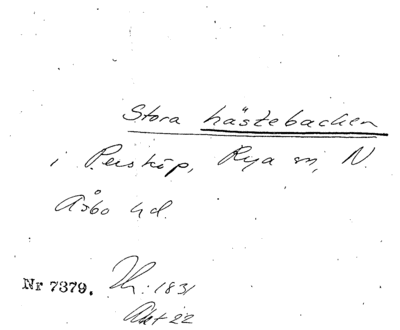 Stora hästebacken
i Persköp, Rya sn, N.
Åsbo hd.
Nr 7379. Th: 1831
Akt 22